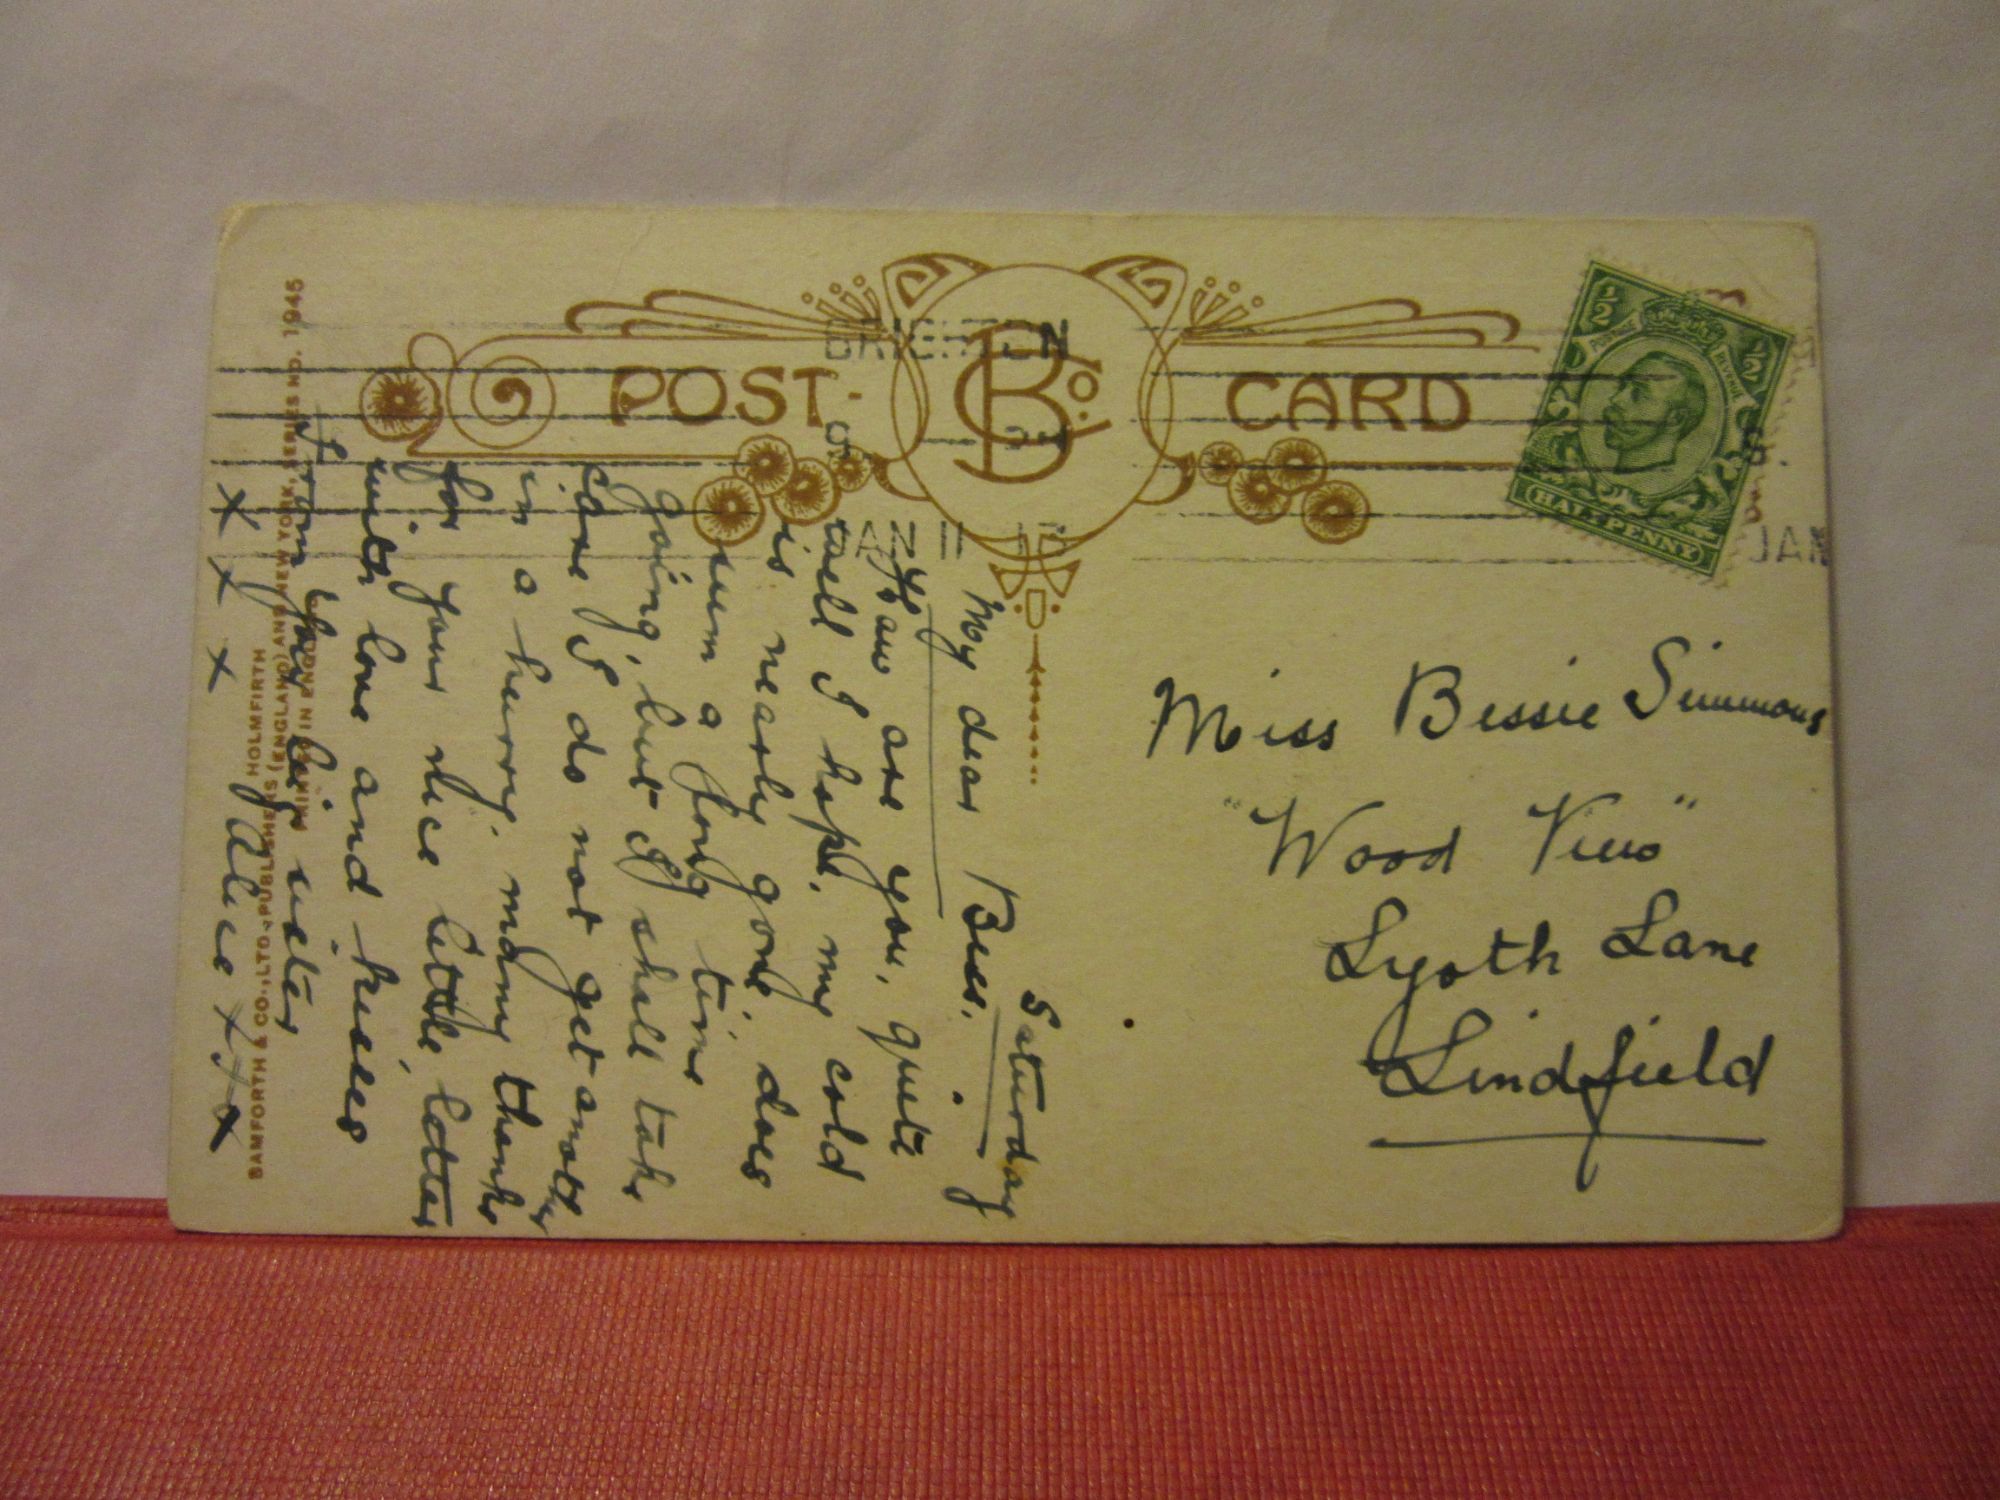 POST-
CARD
B C Co.
BRIGHTON
JAN 11 13
JAN
½ ½
POSTAGE REVENUE
HALFPENNY
Saturday
My dear Bess.
How are you, quite
well I hope. my cold
is nearly gone, does
seem a long time
going, but I shall take
care I do not get another
in a hurry. many thanks
for your nice little letter
with love and kisses
From your big sister
x x x Alice x x x
Miss Bessie Simmons
"Wood View"
Lyoth Lane
Lindfield
BAMFORTH & CO., LTD., PUBLISHERS (ENGLAND) AND NEW YORK, SERIES NO. 1945
HOLMFIRTH
PRINTED IN ENGLAND